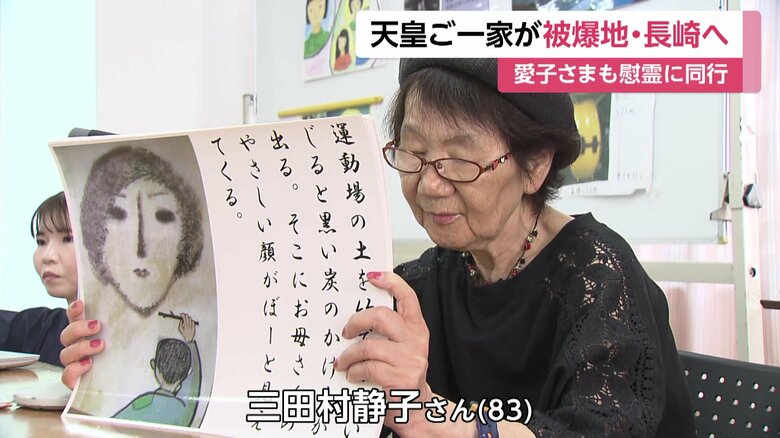 天皇ご一家が被爆地・長崎へ
愛子さまも慰霊に同行
運動場の土を
い
じると黒い炭のかけ
が
出る。そこにお母さん
やさしい顔がぼーと見え
てくる。
三田村静子さん(83)